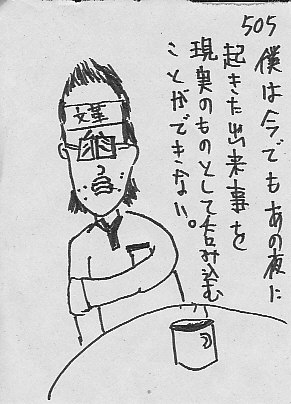 505
僕は今でもあの夜に
起きた出来事を
現実のものとして呑み込む
ことができない。